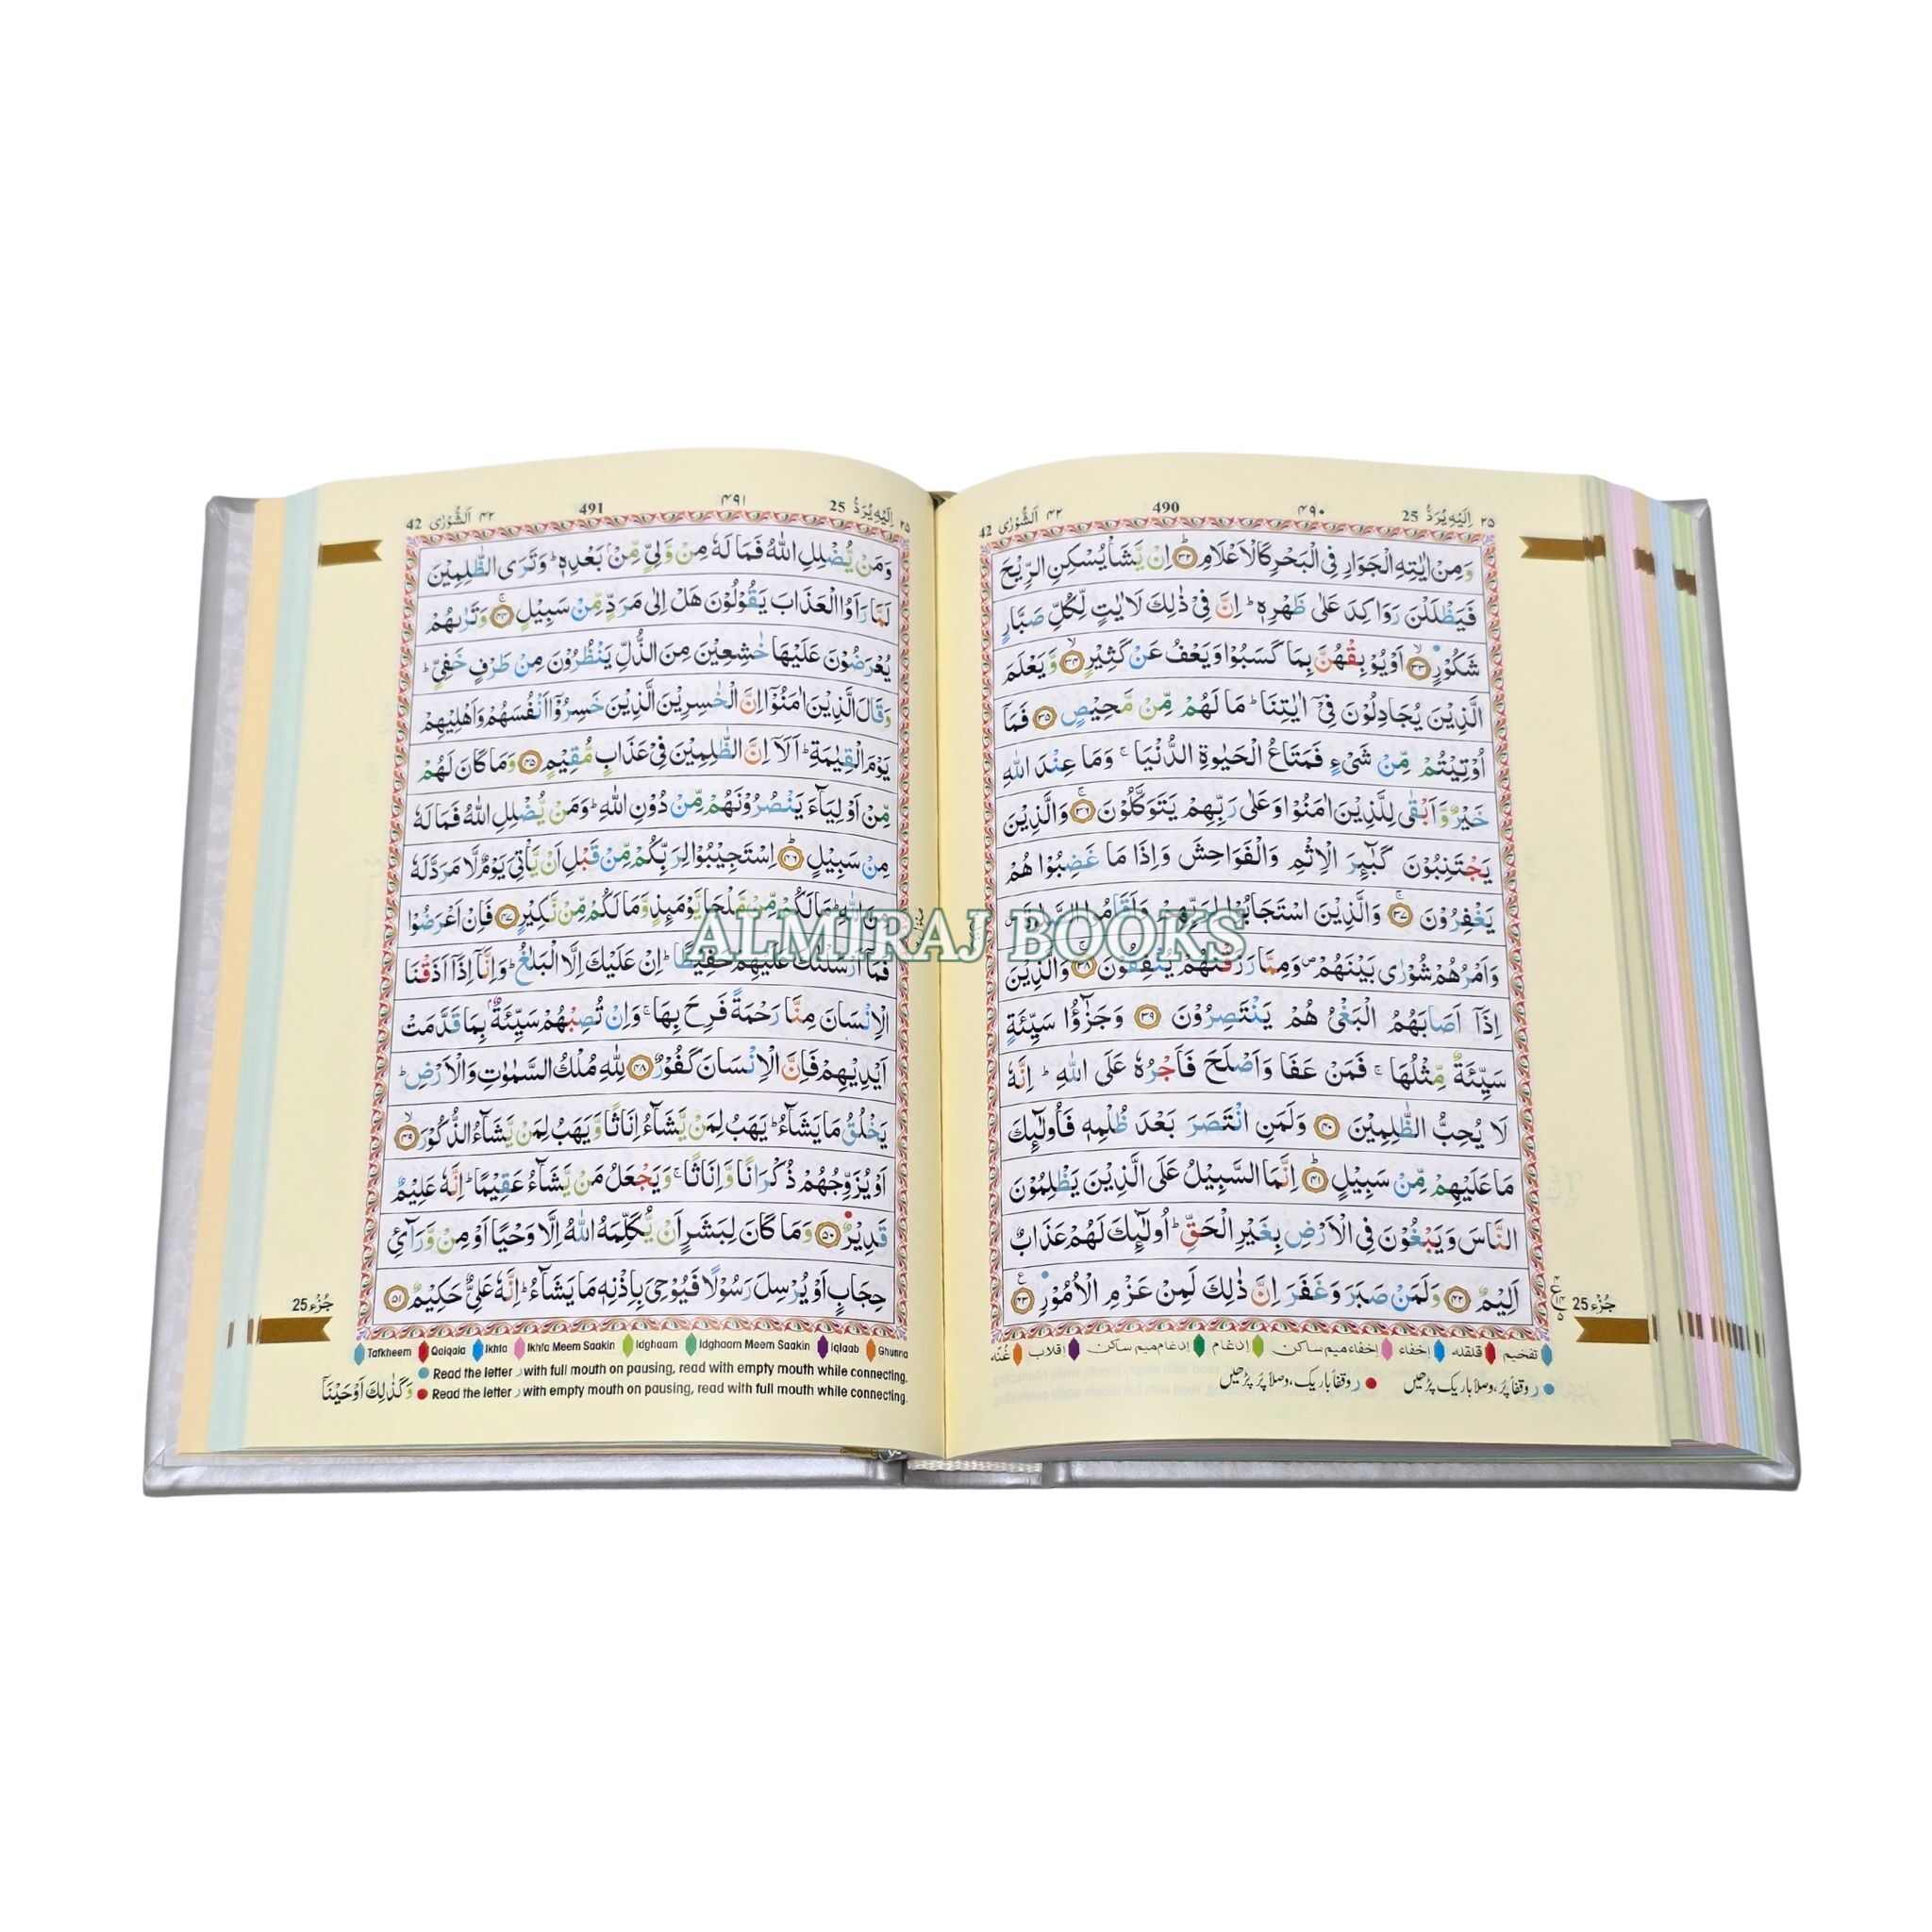 ٢٥ اِلَيْهِ يُرَدُّ 25
٤٩٠
490
٤٢ اَلشُّوْرٰى 42
وَمِنْ اٰيٰتِهِ الْجَوَارِ فِى الْبَحْرِ كَالْاَعْلَامِ ؕ‏ ﴿۳۲﴾ اِنْ يَّشَاْ يُسْكِنِ الرِّيْحَ
فَيَظْلَلْنَ رَوَاكِدَ عَلٰى ظَهْرِهٖ ؕ اِنَّ فِىْ ذٰلِكَ لَاٰيٰتٍ لِّكُلِّ صَبَّارٍ
شَكُوْرٍ ۙ‏ ﴿۳۳﴾ اَوْ يُوْبِقْهُنَّ بِمَا كَسَبُوْا وَيَعْفُ عَنْ كَثِيْرٍ ۙ ﴿۳۴﴾ وَّيَعْلَمَ
الَّذِيْنَ يُجَادِلُوْنَ فِىْۤ اٰيٰتِنَا ؕ مَا لَهُمْ مِّنْ مَّحِيْصٍ‏ ﴿۳۵﴾ فَمَاۤ
اُوْتِيْتُمْ مِّنْ شَىْءٍ فَمَتَاعُ الْحَيٰوةِ الدُّنْيَا ۚ وَمَا عِنْدَ اللّٰهِ
خَيْرٌ وَّاَبْقٰى لِلَّذِيْنَ اٰمَنُوْا وَعَلٰى رَبِّهِمْ يَتَوَكَّلُوْنَ ۚ‏ ﴿۳۶﴾ وَالَّذِيْنَ
يَجْتَنِبُوْنَ كَبٰٓٮِٕرَ الْاِثْمِ وَالْفَوَاحِشَ وَاِذَا مَا غَضِبُوْا هُمْ
يَغْفِرُوْنَ ۚ‏ ﴿۳۷﴾ وَالَّذِيْنَ اسْتَجَابُوْا لِرَبِّهِمْ وَاَقَامُوا الصَّلٰوةَ
وَاَمْرُهُمْ شُوْرٰى بَيْنَهُمْ ۖ وَمِمَّا رَزَقْنٰهُمْ يُنْفِقُوْنَ ۚ‏ ﴿۳۸﴾ وَالَّذِيْنَ
اِذَاۤ اَصَابَهُمُ الْبَغْىُ هُمْ يَنْتَصِرُوْنَ‏ ﴿۳۹﴾ وَجَزٰٓؤُا سَيِّئَةٍ
سَيِّئَةٌ مِّثْلُهَا ۚ فَمَنْ عَفَا وَاَصْلَحَ فَاَجْرُهٗ عَلَى اللّٰهِ ؕ اِنَّهٗ
لَا يُحِبُّ الظّٰلِمِيْنَ‏ ﴿۴۰﴾ وَلَمَنِ انْتَصَرَ بَعْدَ ظُلْمِهٖ فَاُولٰٓٮِٕكَ
مَا عَلَيْهِمْ مِّنْ سَبِيْلٍ ؕ‏ ﴿۴۱﴾ اِنَّمَا السَّبِيْلُ عَلَى الَّذِيْنَ يَظْلِمُوْنَ
النَّاسَ وَيَبْغُوْنَ فِى الْاَرْضِ بِغَيْرِ الْحَقِّ ؕ اُولٰٓٮِٕكَ لَهُمْ عَذَابٌ
اَلِيْمٌ‏ ﴿۴۲﴾ وَلَمَنْ صَبَرَ وَغَفَرَ اِنَّ ذٰلِكَ لَمِنْ عَزْمِ الْاُمُوْرِ ﴿۴۳﴾
جُزْء 25
تفخيم قلقله إخفاء إخفاء ميم ساكن إدغام إدغام ميم ساكن اقلاب غُنّه
ر وقفاً پُر، وصلاً باریک پڑھیں ر وقفاً باریک، وصلاً پُر پڑھیں
٢٥ اِلَيْهِ يُرَدُّ 25
٤٩١
491
٤٢ اَلشُّوْرٰى 42
وَمَنْ يُّضْلِلِ اللّٰهُ فَمَا لَهٗ مِنْ وَّلِىٍّ مِّنْۢ بَعْدِهٖ ؕ وَتَرَى الظّٰلِمِيْنَ
لَمَّا رَاَوُا الْعَذَابَ يَقُوْلُوْنَ هَلْ اِلٰى مَرَدٍّ مِّنْ سَبِيْلٍ ۚ‏ ﴿۴۴﴾ وَتَرٰٮهُمْ
يُعْرَضُوْنَ عَلَيْهَا خٰشِعِيْنَ مِنَ الذُّلِّ يَنْظُرُوْنَ مِنْ طَرْفٍ خَفِىٍّ ؕ
وَقَالَ الَّذِيْنَ اٰمَنُوْۤا اِنَّ الْخٰسِرِيْنَ الَّذِيْنَ خَسِرُوْۤا اَنْفُسَهُمْ وَاَهْلِيْهِمْ
يَوْمَ الْقِيٰمَةِ ؕ اَلَاۤ اِنَّ الظّٰلِمِيْنَ فِىْ عَذَابٍ مُّقِيْمٍ‏ ﴿۴۵﴾ وَمَا كَانَ لَهُمْ
مِّنْ اَوْلِيَآءَ يَنْصُرُوْنَهُمْ مِّنْ دُوْنِ اللّٰهِ ؕ وَمَنْ يُّضْلِلِ اللّٰهُ فَمَا لَهٗ
مِنْ سَبِيْلٍ ؕ‏ ﴿۴۶﴾ اِسْتَجِيْبُوْا لِرَبِّكُمْ مِّنْ قَبْلِ اَنْ يَّاْتِىَ يَوْمٌ لَّا مَرَدَّ لَهٗ
مِنَ اللّٰهِ ؕ مَا لَكُمْ مِّنْ مَّلْجَاٍ يَّوْمَٮِٕذٍ وَّمَا لَكُمْ مِّنْ نَّكِيْرٍ‏ ﴿۴۷﴾ فَاِنْ اَعْرَضُوْا
فَمَاۤ اَرْسَلْنٰكَ عَلَيْهِمْ حَفِيْظًا ؕ اِنْ عَلَيْكَ اِلَّا الْبَلٰغُ ؕ وَاِنَّاۤ اِذَاۤ اَذَقْنَا
الْاِنْسَانَ مِنَّا رَحْمَةً فَرِحَ بِهَا ۚ وَاِنْ تُصِبْهُمْ سَيِّئَةٌۢ بِمَا قَدَّمَتْ
اَيْدِيْهِمْ فَاِنَّ الْاِنْسَانَ كَفُوْرٌ‏ ﴿۴۸﴾ لِلّٰهِ مُلْكُ السَّمٰوٰتِ وَالْاَرْضِ ؕ
يَخْلُقُ مَا يَشَآءُ ؕ يَهَبُ لِمَنْ يَّشَآءُ اِنَاثًا وَّيَهَبُ لِمَنْ يَّشَآءُ الذُّكُوْرَ ۙ‏ ﴿۴۹﴾
اَوْ يُزَوِّجُهُمْ ذُكْرَانًا وَّاِنَاثًا ۚ وَيَجْعَلُ مَنْ يَّشَآءُ عَقِيْمًا ؕ اِنَّهٗ عَلِيْمٌ
قَدِيْرٌ‏ ﴿۵۰﴾ وَمَا كَانَ لِبَشَرٍ اَنْ يُّكَلِّمَهُ اللّٰهُ اِلَّا وَحْيًا اَوْ مِنْ وَّرَآىٴِ
حِجَابٍ اَوْ يُرْسِلَ رَسُوْلًا فَيُوْحِىَ بِاِذْنِهٖ مَا يَشَآءُ ؕ اِنَّهٗ عَلِىٌّ حَكِيْمٌ‏ ﴿۵۱﴾
جُزْء 25
Tafkheem Qalqala Ikhfa Ikhfa Meem Saakin Idghaam Idghaam Meem Saakin Iqlaab Ghunna
Read the letter ر with full mouth on pausing, read with empty mouth while connecting.
Read the letter ر with empty mouth on pausing, read with full mouth while connecting.
وَكَذٰلِكَ اَوْحَيْنَاۤ
ALMIRAJ BOOKS